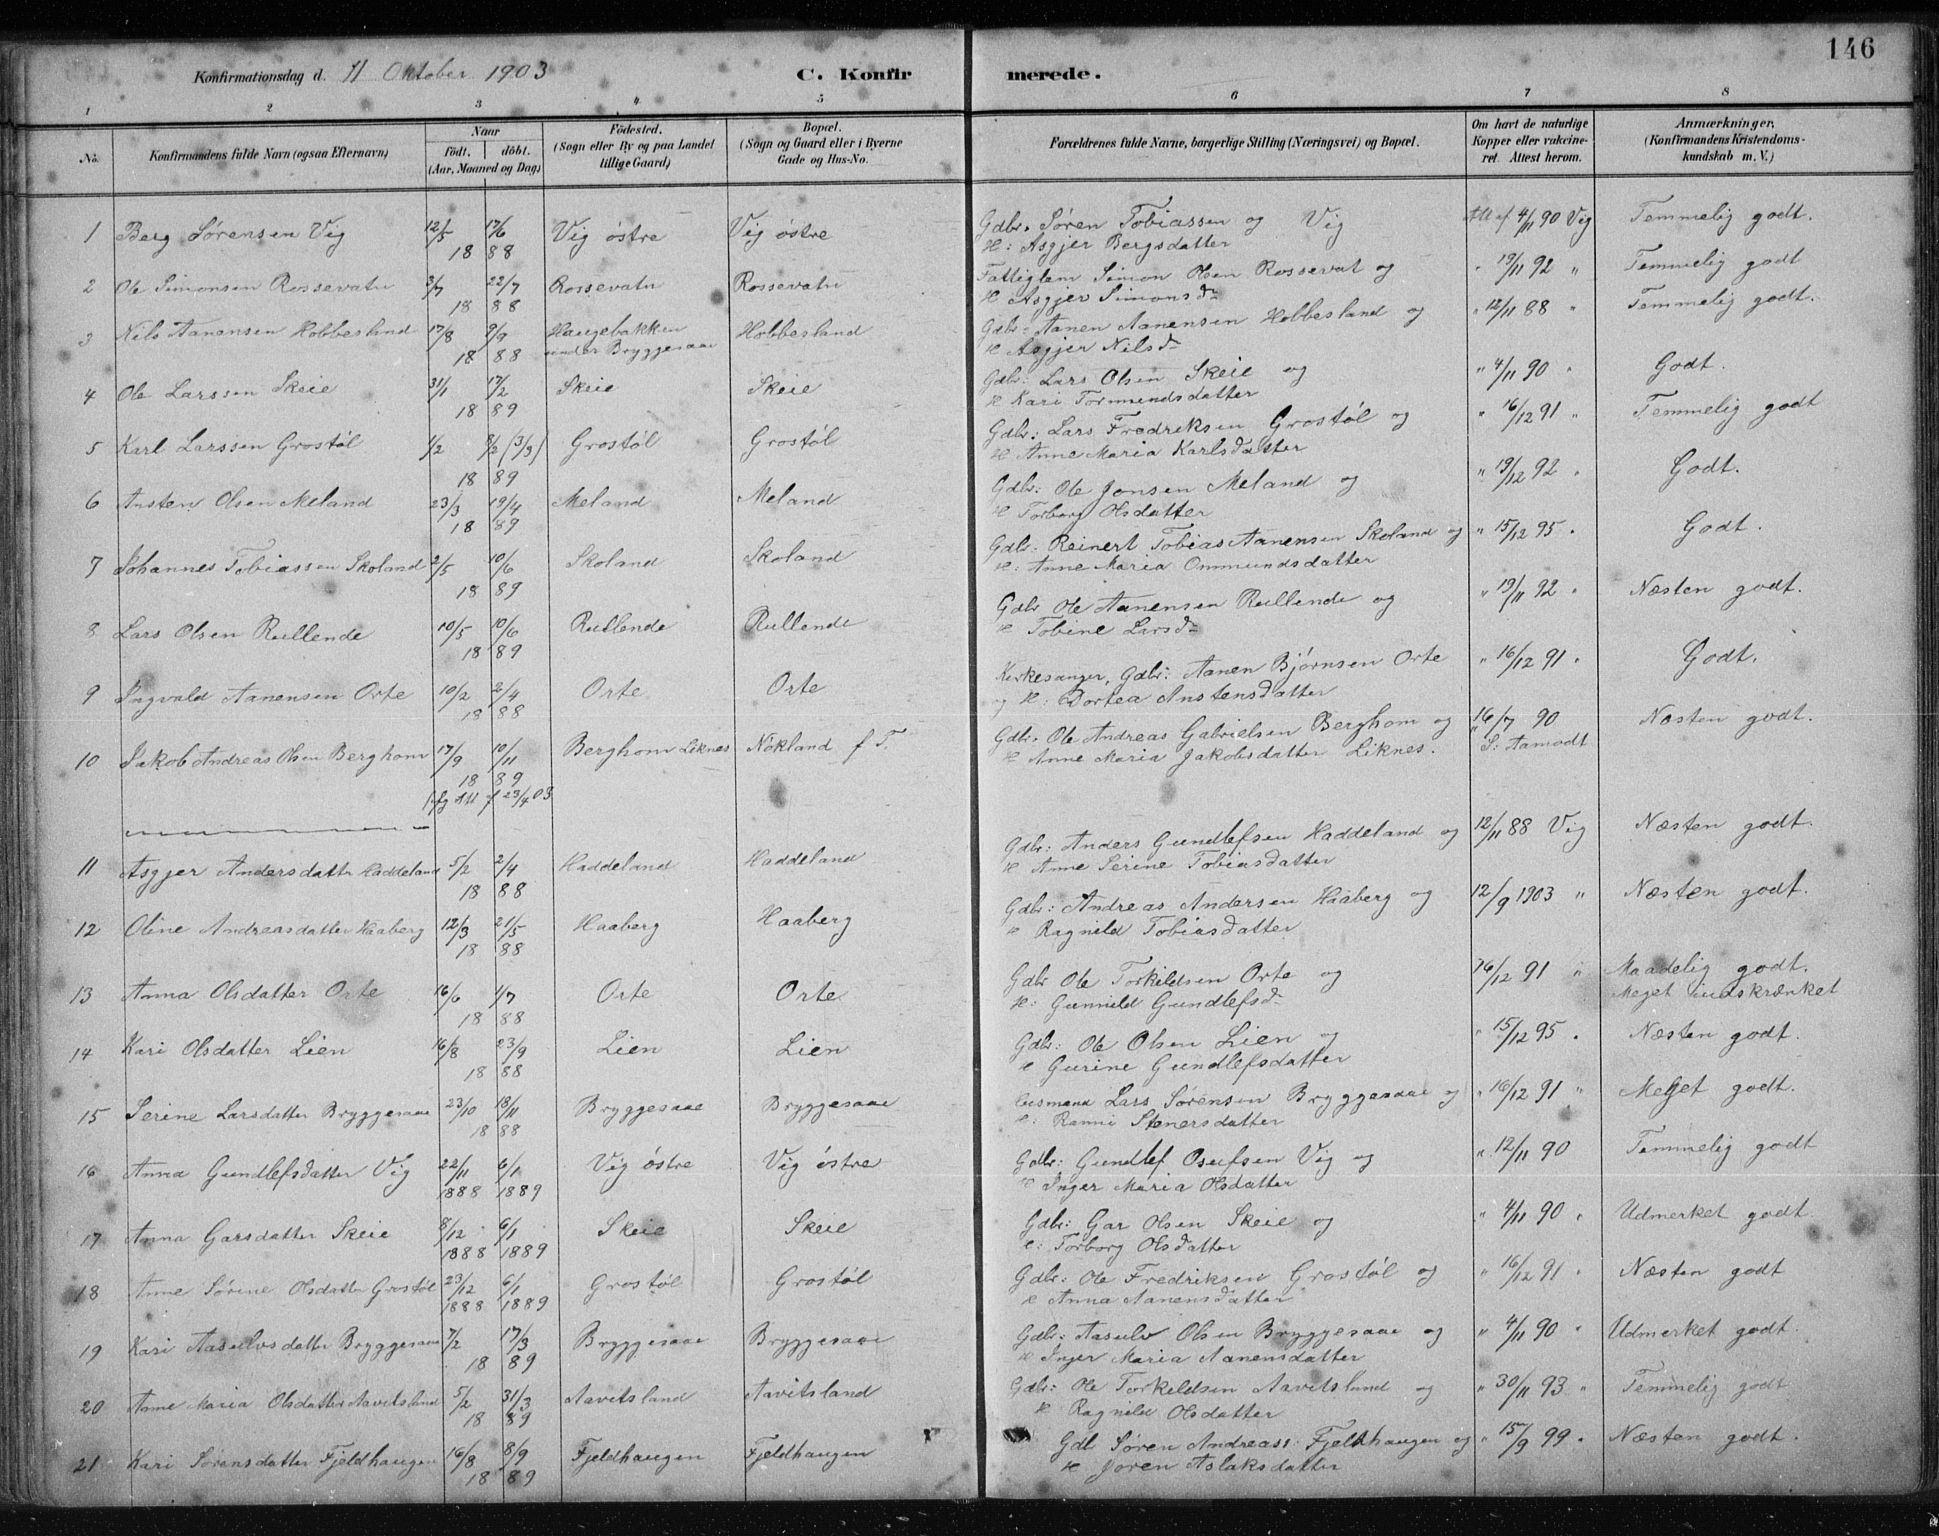 146
Konfirmationsdag d. 11 Oktober 1903 C. Konfirmerede.
1 2 3 4 5 6 7 8
No. Konfirmandens fulde Navn (ogsaa Efternavn) Naar födt. döbt. (Aar, Maaned og Dag) Födested. (Sogn eller By og paa Landet tillige Gaard) Bopæl. (Sogn og Gaard eller i Byerne Gade og Hus-No. Forældrenes fulde Navne, borgerlige Stilling (Næringsvei) og Bopæl. Om havt de naturlige Kopper eller vakcineret. Attest herom. Anmærkninger. (Konfirmandens Kristendomskundskab m. V.)
1 Berg Sørensen Vig 12/5 17/6 Vig østre Vig østre Gdbr. Søren Tobiassen og Vig Att af 4/11 90 Vig Temmelig godt.
18 88 H: Asgjer Bergsdatter
2 Ole Simonsen Rossevatn 2/7 22/7 Rossevatn Rossevatn Fattiglem Simon Olsen Rossevat og " 19/11 92 " Temmelig godt
18 88 H Asgjer Simonsd
3 Nils Aanensen Hobbesland 17/8 9/9 Haugebakken Hobbesland Gdbr: Aanen Aanensen Hobbesland og " 12/11 88 " Temmelig godt.
18 88 under Bryggesaae H Asgjer Nilsd
4 Ole Larssen Skeie 31/1 17/2 Skeie Skeie Gdbr: Lars Olsen Skeie og " 4/11 90 " Godt.
18 89 H Kari Tormundsdatter
5 Karl Larssen Grostøl 1/2 8/2 (3/3) Grostøl Grostøl Gdbr: Lars Fredriksen Grostøl og " 16/12 91 " Temmelig godt
18 89 H Anne Maria Karlsdatter
6 Ansten Olsen Meland 23/3 19/4 Meland Meland Gdbr: Ole Jonsen Meland og " 19/12 92 " Godt.
18 89 H Torborg Olsdatter
7 Johannes Tobiassen Skoland 2/5 10/6 Skoland Skoland Gdbr. Reinert Tobias Aanensen Skoland og " 15/12 95 " Godt.
18 89 H: Anne Maria Ommundsdatter
8 Lars Olsen Rullende 10/5 10/6 Rullende Rullende Gdbr Ole Aanensen Rullende og " 19/11 92 " Næsten godt.
18 89 H Tobine Larsd
9 Ingvald Aanensen Orte 10/2 2/4 Orte Orte Kirkesanger, Gdbr: Aanen Bjørnsen Orte " 16/12 91 " Godt.
18 88 og H: Dortea Anstensdatter
10 Jakob Andreas Olsen Berghom 17/9 10/11 Berghom Liknes Nøkland f T. Gdbr. Ole Andreas Gabrielsen Berghom og 16/7 90 Næsten godt.
18 89 H Anne Maria Jakobsdatter Liknes. S: Aamodt
flg Att f 23/4 03
11 Asgjer Andersdatter Haddeland 5/2 2/4 Haddeland Haddeland Gdbr: Anders Gundlefsen Haddeland og 12/11 88 Vig Næsten godt.
18 88 H Anne Serine Tobiasdatter
12 Oline Andreasdatter Haaberg 12/3 21/5 Haaberg Haaberg Gdbr: Andreas Andersen Haaberg og 12/9 1903 " Næsten godt.
18 88 H Ragnild Tobiasdatter
13 Anna Olsdatter Orte 16/6 1/7 Orte Orte Gdbr Ole Torkildsen Orte og 16/12 91 " Maadelig godt.
18 88 H: Gunnild Gundlefsd Meget indskrænket
14 Kari Olsdatter Lien 16/8 23/9 Lien Lien Gdbr: Ole Olsen Lien og " 15/12 95 " Næsten godt.
18 88 H Gurine Gundlefsdatter
15 Serine Larsdatter Bryggesaae 23/10 18/11 Bryggesaae Bryggesaae Husmand Lars Sørensen Bryggesaae og " 16/12 91 " Meget godt.
18 88 H: Ranni Stenersdatter
16 Anna Gundlefsdatter Vig 22/11 6/1 Vig østre Vig østre Gdbr: Gundlef Osufsen Vig og " 12/11 90 Temmelig godt
1888 1889 H Inger Maria Olsdatter
17 Anna Garsdatter Skeie 8/12 6/1 Skeie Skeie Gdbr: Gar Olsen Skeie og " 4/11 90 " Udmerket godt
1888 1889 H: Torborg Olsdatter
18 Anne Sørine Olsdatter Grostøl 23/12 6/1 Grostøl Grostøl Gdbr: Ole Fredriksen Grostøl og " 16/12 91 " Næsten godt
1888 1889 H Anna Aanensdatter
19 Kari Aasulvsdatter Bryggesaae 7/2 17/3 Bryggesaae Bryggesaae Gdbr: Aasulv Olsen Bryggesaae og " 4/11 90 " Udmerket godt.
18 89 H Inger Maria Aanensdatter
20 Anne Maria Olsdatter Aavitsland 5/2 31/3 Aavitsland Aavitsland Gdbr: Ole Torkeldsen Aavitsland og " 30/11 93 " Temmelig godt
18 89 H Ragnild Olsdatter
21 Kari Sørensdatter Fjeldhaugen 16/8 8/9 Fjeldhaugen Fjeldhaugen Gdb Søren Andreass: Fjeldhaugen og " 15/9 99 " Næsten godt.
18 89 H Joren Aslaksdatter